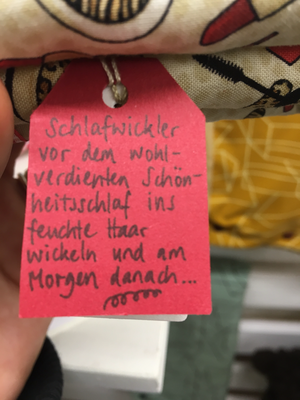 Schlafwickler
vor dem wohl-
verdienten Schön-
heitsschlaf ins
feuchte Haar
wickeln und am
Morgen danach...